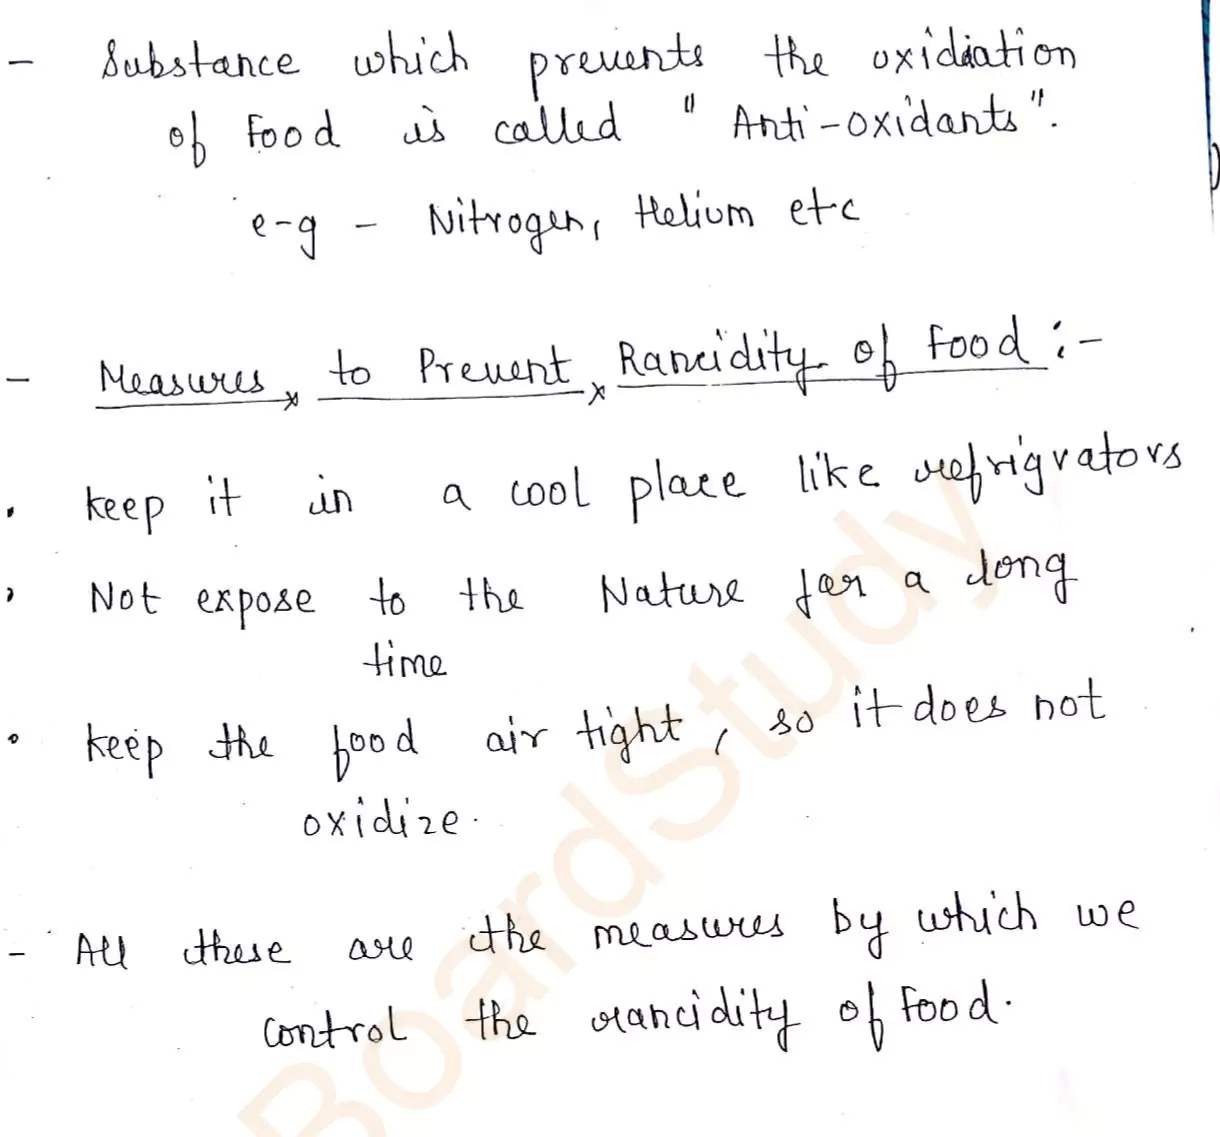 - Substance which prevents the oxidiation
of Food is called " Anti-oxidants".
e-g - Nitrogen, Helium etc
- Measures to Prevent Rancidity of Food :-
. keep it in a cool place like refrigrators
. Not expose to the Nature for a long
time
. keep the food air tight, so it does not
oxidize.
- All these are the measures by which we
control the rancidity of Food.
BoardStudy